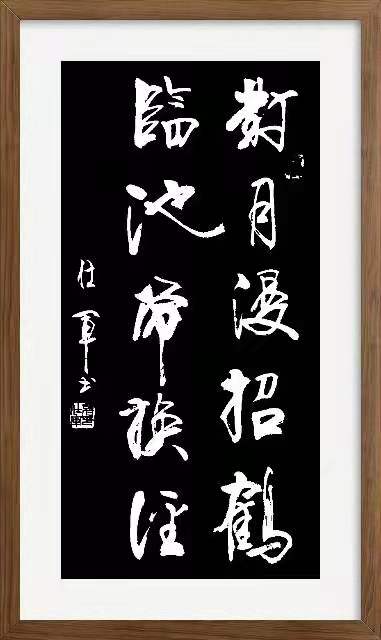 對月漫招鶴
臨池換經
任軍书